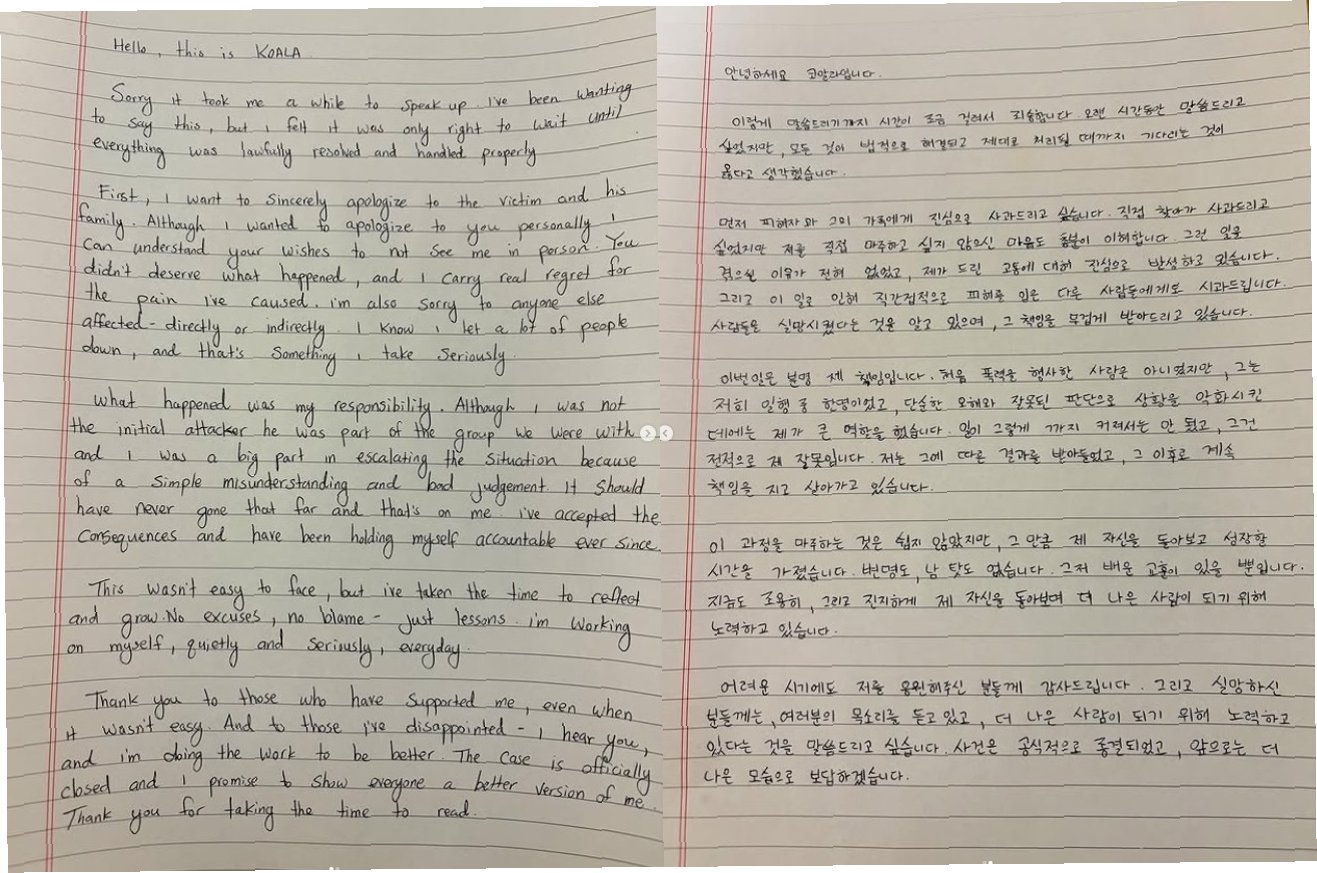 Hello, this is KOALA.
Sorry it took me a while to speak up. i've been wanting
to say this, but i felt it was only right to wait until
everything was lawfully resolved and handled properly
First, i want to sincerely apologize to the victim and his
family. Although i wanted to apologize to you personally i
can understand your wishes to not see me in person. You
didn't deserve what happened, and i carry real regret for
the pain i've caused. i'm also sorry to anyone else
affected - directly or indirectly. i know i let a lot of people
down, and that's something i take seriously.
What happened was my responsibility. Although i was not
the initial attacker he was part of the group we were with
and i was a big part in escalating the situation because
of a simple misunderstanding and bad judgement. it should
have never gone that far and that's on me. i've accepted the
consequences and have been holding myself accountable ever since.
This wasn't easy to face, but i've taken the time to reflect
and grow. No excuses, no blame - just lessons. i'm working
on myself, quietly and seriously, everyday.
Thank you to those who have supported me, even when
it wasn't easy. And to those i've disappointed - i hear you,
and i'm doing the work to be better. The case is officially
closed and i promise to show everyone a better version of me.
Thank you for taking the time to read.
안녕하세요 코알라입니다.
이렇게 말씀드리기까지 시간이 조금 걸려서 죄송합니다 오랜 시간동안 말씀드리고
싶었지만, 모든 것이 법적으로 해결되고 제대로 처리될 때까지 기다리는 것이
옳다고 생각했습니다.
먼저 피해자와 그의 가족에게 진심으로 사과드리고 싶습니다. 직접 찾아가 사과드리고
싶었지만 저를 직접 마주하고 싶지 않으신 마음도 충분히 이해합니다. 그런 일을
겪으실 이유가 전혀 없었고, 제가 드린 고통에 대해 진심으로 반성하고 있습니다.
그리고 이 일로 인해 직간접적으로 피해를 입은 다른 사람들에게도 사과드립니다.
사람들을 실망시켰다는 것을 알고 있으며, 그 책임을 무겁게 받아드리고 있습니다.
이번일은 분명 제 책임입니다. 처음 폭력을 행사한 사람은 아니였지만, 그는
저희 일행 중 한명이었고, 단순한 오해와 잘못된 판단으로 상황을 악화시킨
데에는 제가 큰 역할을 했습니다. 일이 그렇게 까지 커져서는 안 됐고, 그건
전적으로 제 잘못입니다. 저는 그에 따른 결과를 받아들였고, 그 이후로 계속
책임을 지고 살아가고 있습니다.
이 과정을 마주하는 것은 쉽지 않았지만, 그 만큼 제 자신을 돌아보고 성장할
시간을 가졌습니다. 변명도, 남 탓도 없습니다. 그저 배운 교훈이 있을 뿐입니다.
지금도 조용히, 그리고 진지하게 제 자신을 돌아보며 더 나은 사람이 되기 위해
노력하고 있습니다.
어려운 시기에도 저를 응원해주신 분들께 감사드립니다. 그리고 실망하신
분들께는, 여러분의 목소리를 듣고있고, 더 나은 사람이 되기 위해 노력하고
있다는 것을 말씀드리고 싶습니다. 사건은 공식적으로 종결되었고, 앞으로는 더
나은 모습으로 보답하겠습니다.